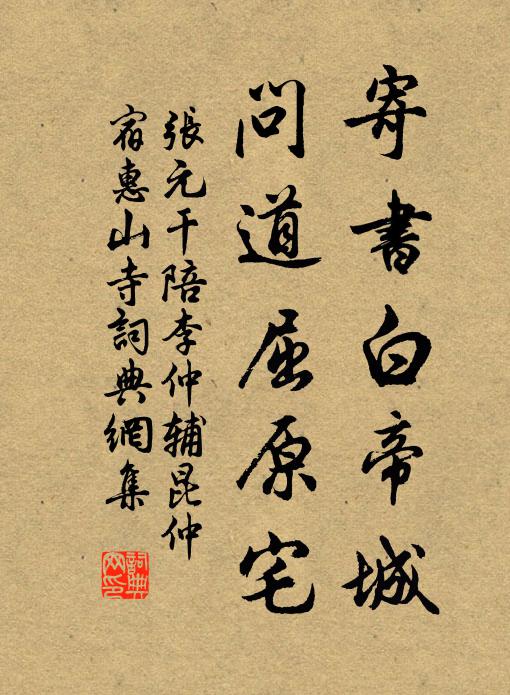 寄書白帝城
問道屈原宅
張元干陪李仲辅昆仲
宿惠山寺詞典網集
詞典網印